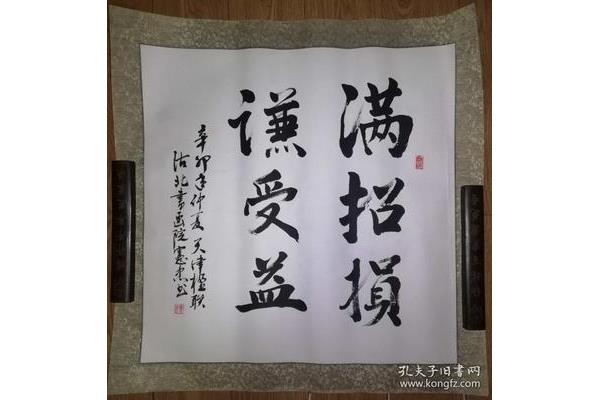 满招损
谦受益
辛卯年仲夏天津楹联
沽北书画院宪忠书
孔夫子旧书网
www.kongfz.com